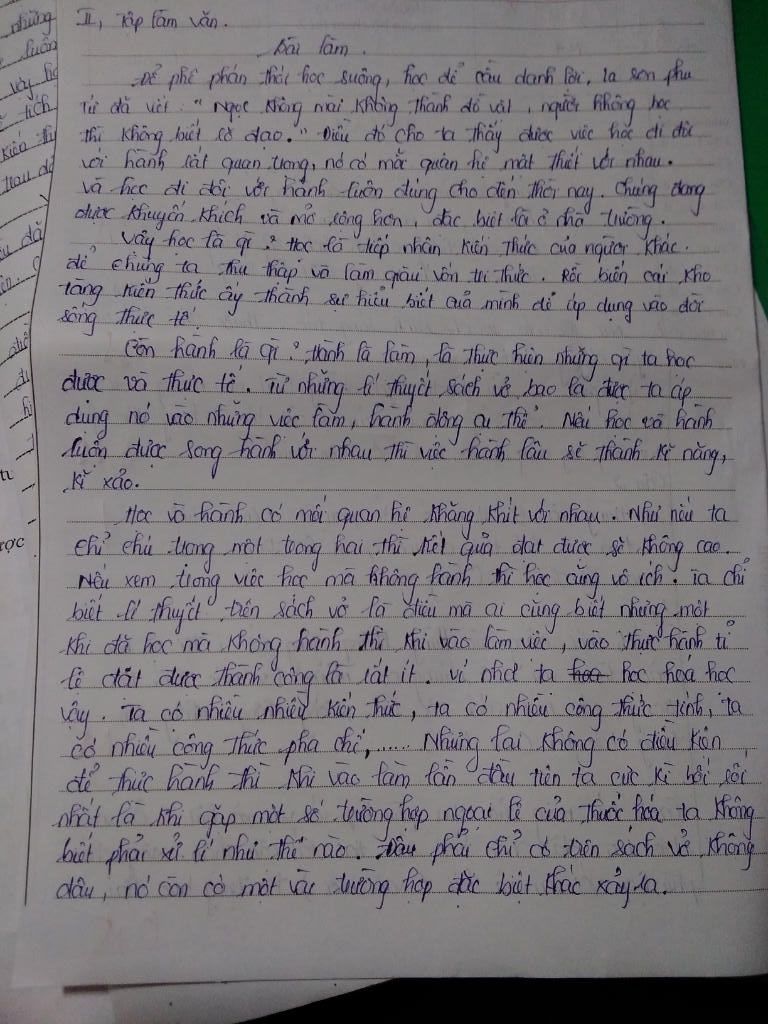 II, Tập làm văn.
Bài làm.
Để phê phán thói học suông, học để cầu danh lời, La sơn phu
tử đã viết: "Ngọc không mài không thành đồ vật, người không học
thì không biết rõ đạo." Điều đó cho ta thấy được việc học đi đôi
với hành rất quan trọng, nó có mối quan hệ mật thiết với nhau.
và học đi đôi với hành luôn đúng cho đến thời nay. Chúng đang
được khuyến khích và mở rộng hơn, đặc biệt là ở nhà trường.
Vậy học là gì? Học là tiếp nhận kiến thức của người khác.
để chúng ta thu thập và làm giàu vốn tri thức. Rồi biến cái kho
tàng kiến thức ấy thành sự hiểu biết của mình để áp dụng vào đời
sống thực tế.
Còn hành là gì? Hành là làm, là thực hiện những gì ta học
được và thực tế. Từ những lí thuyết sách vở bao la được ta áp
dụng nó vào những việc làm, hành động cụ thể. Nếu học và hành
luôn được song hành với nhau thì việc hành lâu sẽ thành kĩ năng,
kĩ xảo.
Học và hành có mối quan hệ khăng khít với nhau. Như nếu ta
chỉ chú trọng một trong hai thì kết quả đạt được sẽ không cao.
Nếu xem trọng việc học mà không hành thì học cũng vô ích. Ta chỉ
biết lí thuyết trên sách vở là điều mà ai cũng biết nhưng một
khi đã học mà không hành thì khi vào làm việc, vào thực hành tỉ
lệ đạt được thành công là rất ít. ví như ta học hoá học
vậy. Ta có nhiều nhiều kiến thức, ta có nhiều công thức tính, ta
có nhiều công thức pha chế,...... Nhưng lại không có điều kiện
để thực hành thì khi vào làm lần đầu tiên ta cực kì bối rối
nhất là khi gặp một số trường hợp ngoại lệ của thuốc hóa ta không
biết phải xử lí như thế nào. Đâu phải chỉ có trên sách vở không
đâu, nó còn có một vài trường hợp đặc biệt khác xảy ra.